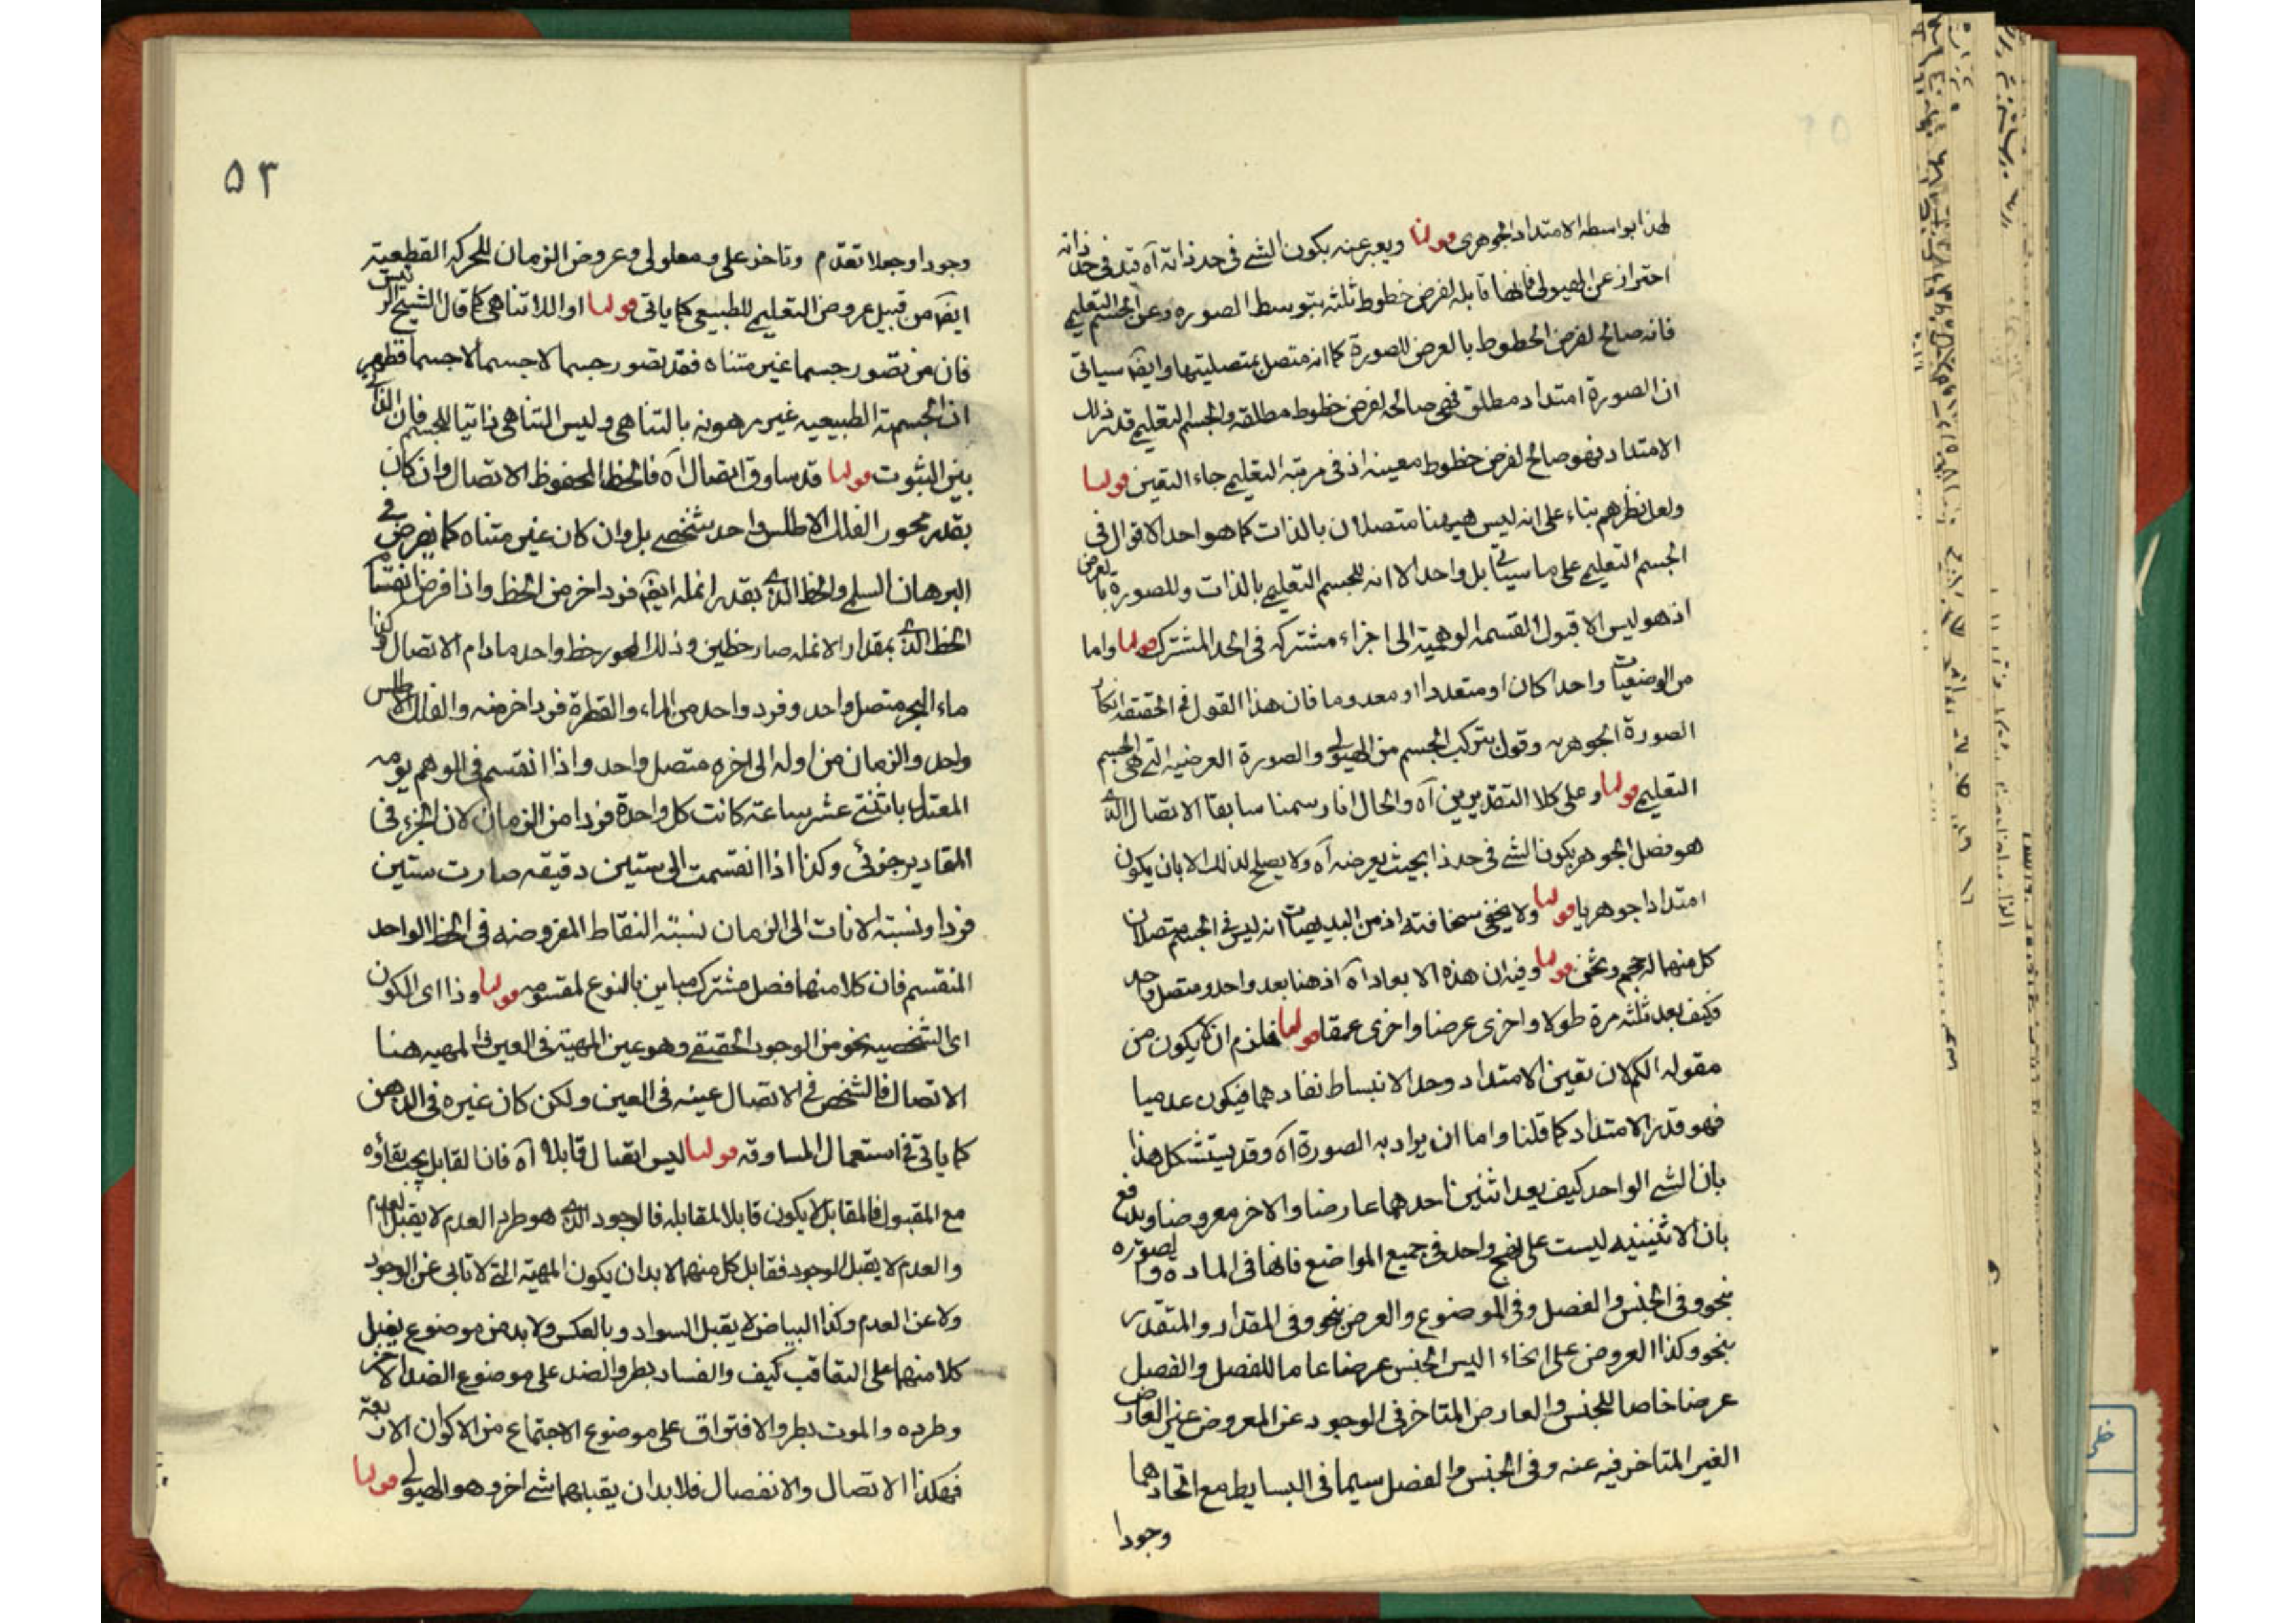 لهذا بواسطه الامتداد الجوهری قولنا ویعبر عنه بکون الشئ فی حد ذاته آه قید فی حد ذاته
احتراز عن الهیولی فانها قابله لفرض خطوط ثلثه بتوسط الصوره وعن الجسم التعلیمی
فانه صالح لفرض الخطوط بالعرض للصورة کما انه متصل بمتصلیتها وایضا سیاتی
ان الصورة امتداد مطلق فهی صالحه لفرض خطوط مطلقه والجسم التعلیمی قدر ذلک
الامتداد فهو صالح لفرض خطوط معینه اذ فی مرتبه التعلیمی جاء التعین قولنا
ولعل نظرهم بناء علی انه لیس هیهنا متصلان بالذات کما هو احد الاقوال فی
الجسم التعلیمی علی ما سیأتی بل واحد الا انه للجسم التعلیمی بالذات وللصورة بالعرض
اذ هو لیس الا قبول القسمه الوهمیة الی اجزاء مشترکه فی الحد المشترک قولنا واما
من الوضعیات واحدا کان او متعددا او معدوما فان هذا القول فی الحقیقه انکار
الصورة الجوهریه وقول بترکب الجسم من الهیولی والصورة العرضیه التی هی الجسم
التعلیمی قولنا وعلی کلا التقدیرین آه والحال انا رسمنا سابقا الاتصال الذی
هو فصل الجوهر بکون الشئ فی حد ذا بحیث یعرضه آه ولا یصلح لذلک الا بان یکون
امتدادا جوهریا قولنا ولا یخفی سخافته اذ من البدیهیات انه لیس فی الجسم متصلان
کل منهما له حجم وثخن قولنا وفیه ان هذه الابعاد آه اذ هنا بعد واحد ومتصل واحد
فکیف یعد ثلثه مرة طولا واخری عرضا واخری عمقا قولنا فلزم ان لا یکون من
مقوله الکم لان تعین الامتداد وحد الانبساط نفادهما فیکون عدمیا
فهو قدر الامتداد کما قلنا واما ان یراد به الصورة آه وقد یستشکل هذا
بان الشئ الواحد کیف یعد اثنین احدهما عارضا والاخر معروضا ویدفع
بان الاثنینیه لیست علی نهج واحد فی جمیع المواضع فانها فی الماده والصوره
بنحو وفی الجنس والفصل وفی الموضوع والعرض بنحو وفی المقدار والمتقدر
بنحو وکذا العروض علی انحاء الیس الجنس عرضا عاما للفصل والفصل
عرضا خاصا للجنس والعارض المتاخر فی الوجود عن المعروض غیر العارض
الغیر المتاخر فیه عنه وفی الجنس والفصل سیما فی البسایط مع اتحادهما
وجودا
۵۳
وجودا وجعلا تقدم وتاخر علی ومعلولی وعروض الزمان للحرکه القطعیة
ایضا من قبیل عروض التعلیمی للطبیعی کما یاتی قولنا او اللاتناهی کما قال الشیخ الرئیس
فان من تصور جسما غیر متناه فقد تصور جسما لا جسما لا جسما فظهر
ان الجسمیة الطبیعیه غیر مرهونه بالتناهی ولیس التناهی ذاتیا للجسم فان الذاتی
بین الثبوت قولنا قد ساوق اتصال آه فالخط المحفوظ الاتصال وان کان
بقدر محور الفلک الاطلس واحد شخصی بل وان کان غیر متناه کما یفرض فی
البرهان السلمی والخط الذی بقدر انمله ایضا فرد اخر من الخط واذا فرض انقسام
الخط الذی بمقدار الانمله صار خطین وذلک المحور خط واحد مادام الاتصال وکذا
ماء البحر متصل واحد وفرد واحد من الماء والقطرة فرد اخر منه والفلک الاطلس
واحد والزمان من اوله الی اخره متصل واحد واذا انقسم فی الوهم یومه
المعتدل باثنتی عشر ساعته کانت کل واحدة فردا من الزمان لان الجزء فی
المقادیر جزئی وکذا اذا انقسمت الی ستین دقیقه صارت ستین
فردا ونسبته الانات الی الزمان نسبته النقاط المفروضه فی الخط الواحد
المنقسم فان کلا منهما فصل مشترک مباین بالنوع لمقسومه قولنا وذا ای الکون
ای الشخصیه نحو من الوجود الحقیقی وهو عین المهیة فی العین والمهیه هنا
الاتصال فالشخص فی الاتصال عینه فی العین ولکن کان غیره فی الذهن
کما یاتی فی استعمال المساوقه قولنا لیس اتصال قابلا آه فان القابل یجب بقاؤه
مع المقبول فالمقابل لا یکون قابلا لمقابله فالوجود الذی هو طرد العدم لا یقبل العدم
والعدم لا یقبل الوجود فقابل کل منهما لابد ان یکون المهیة التی لا تابی عن الوجود
ولا عن العدم وکذا البیاض لا یقبل السواد وبالعکس ولابد من موضوع یقبل
کلا منهما علی التعاقب کیف والفساد بطرو الضد علی موضوع الضد الاخر
وطرده والموت بطرو الافتراق علی موضوع الاجتماع من الاکوان الاربعة
فهکذا الاتصال والانفصال فلابد ان یقبلهما شئ اخر وهو الهیولی قولنا